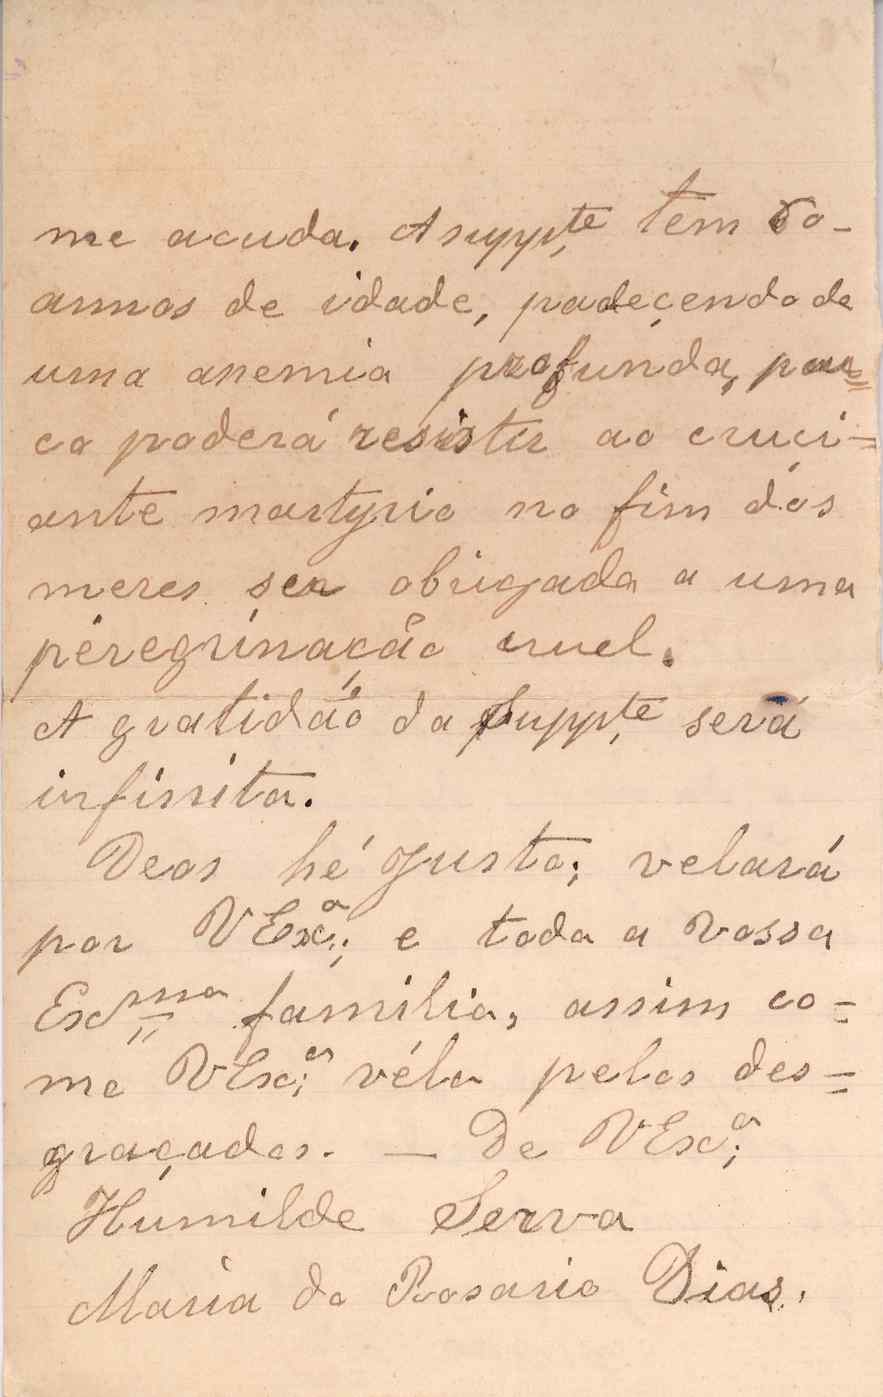 me acuda. A suppte tem 60
annos de idade, padeçendo de
uma anemia profunda, pou=
co poderá resistir ao cruci=
ante martyrio no fim dos
meres ser obrigada a uma
péregrinação cruel.
A gratidão da Suppte será
infinita.
Deos hé Justo; velará
por V Exca; e toda a vossa
Excma familia, assim co=
mo V Exca; véla pelos des=
graçados. — De V Exca;
Humilde Serva
Maria do Rosario Dias.